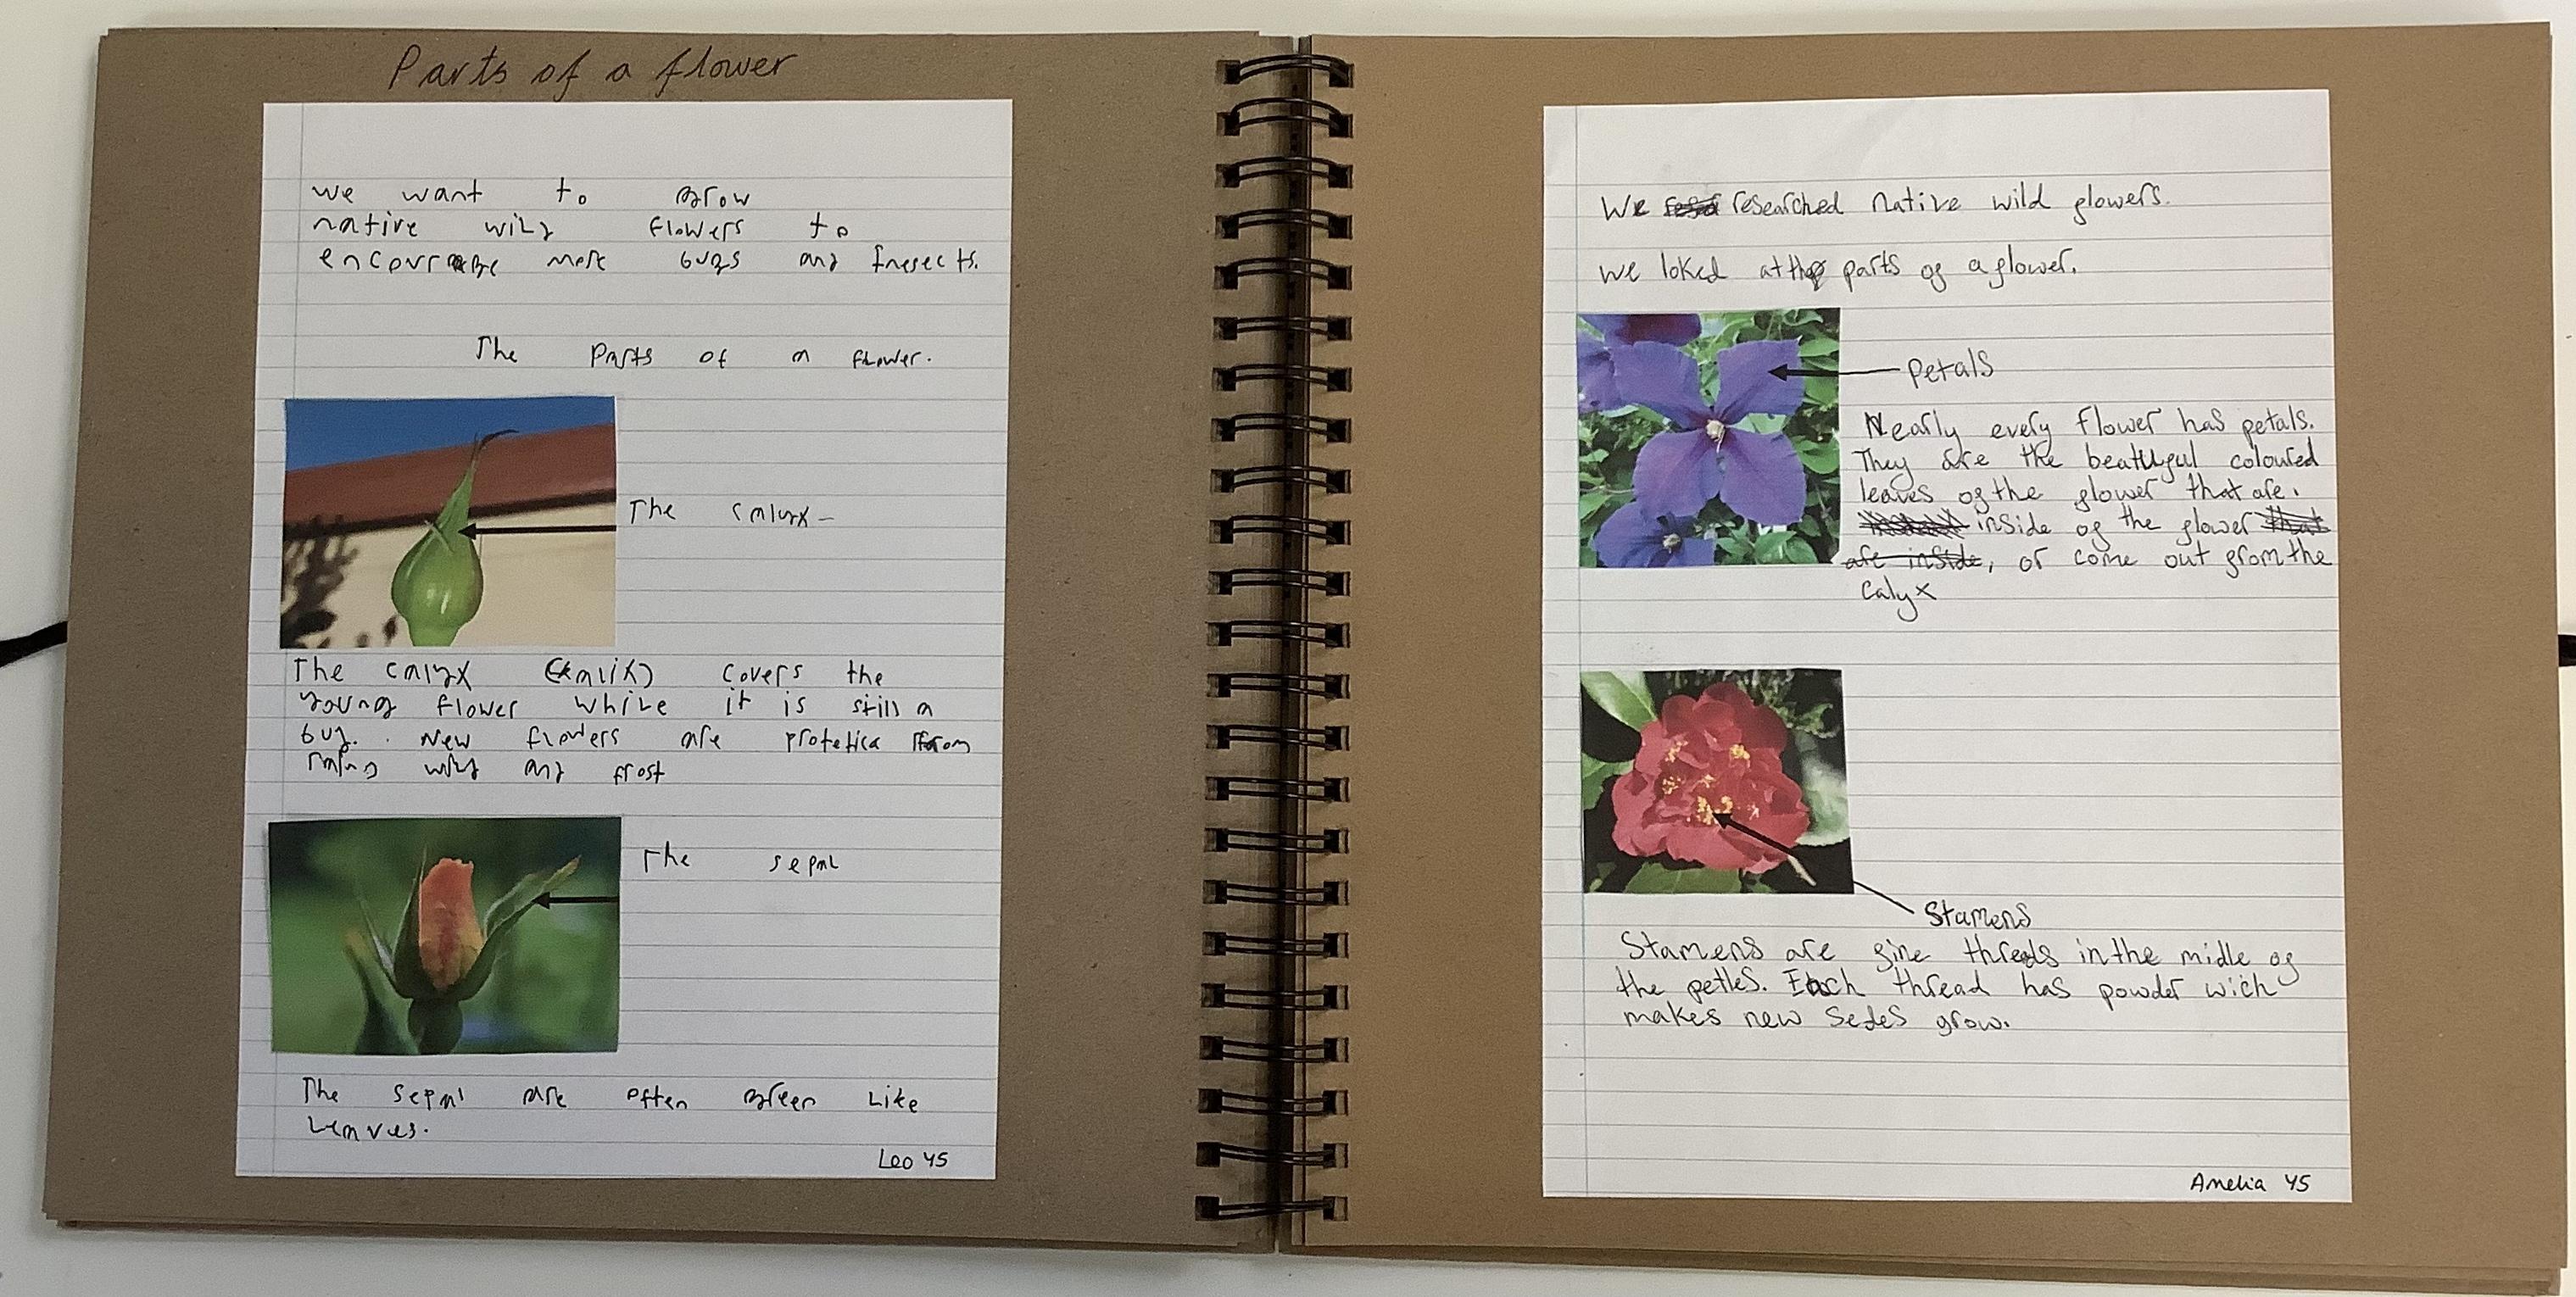 Parts of a flower
we want to grow
native wild flowers to
encourage more bugs and insects.
The Parts of a flower.
The calyx-
The calyx (kalix) covers the
young flower while it is still a
bud. New flowers are from
wind and frost
The sepal
The sepal are often green like
leaves.
Leo Y5
We researched native wild flowers.
we loked at the parts of a flower.
Petals
Nearly every flower has petals.
They are the coloured
leaves of the flower that are.
inside of the flower that
are inside, or come out from the
calyx
Stamens
Stamens are fine threads in the midle of
the petles. Each thread has powder wich
makes new sedes grow.
Amelia Y5